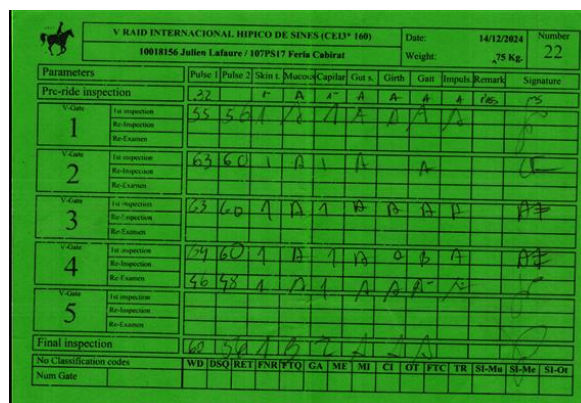 V RAID INTERNACIONAL HIPICO DE SINES (CEI3* 160) Date: 14/12/2024 Number
10018156 Julien Lafaure / 107PS17 Feria Cabirat Weight: 75 Kg. 22
Parameters Pulse 1 Pulse 2 Skin t. Mucous Capilar Gut s. Girth Gait Impuls. Remark Signature
Pre-ride inspection 32 A A A A A
V-Gate 1 1st inspection 55 56 1 A 1 A A A A
Re-Inspection
Re-Examen
V-Gate 2 1st inspection 63 60 1 A 1 A A
Re-Inspection
Re-Examen
V-Gate 3 1st inspection 63 60 1 A 1 A A A A
Re-Inspection
Re-Examen
V-Gate 4 1st inspection 64 60 1 A 1 A B A
Re-Inspection
Re-Examen 46 48 1 A 1 A A A-
V-Gate 5 1st inspection
Re-Inspection
Re-Examen
Final inspection 60 56 1 B 2 A A A
No Classification codes WD DSQ RET FNR FTQ GA ME MI CI OT FTC TR SI-Mu SI-Me SI-Ot
Num Gate